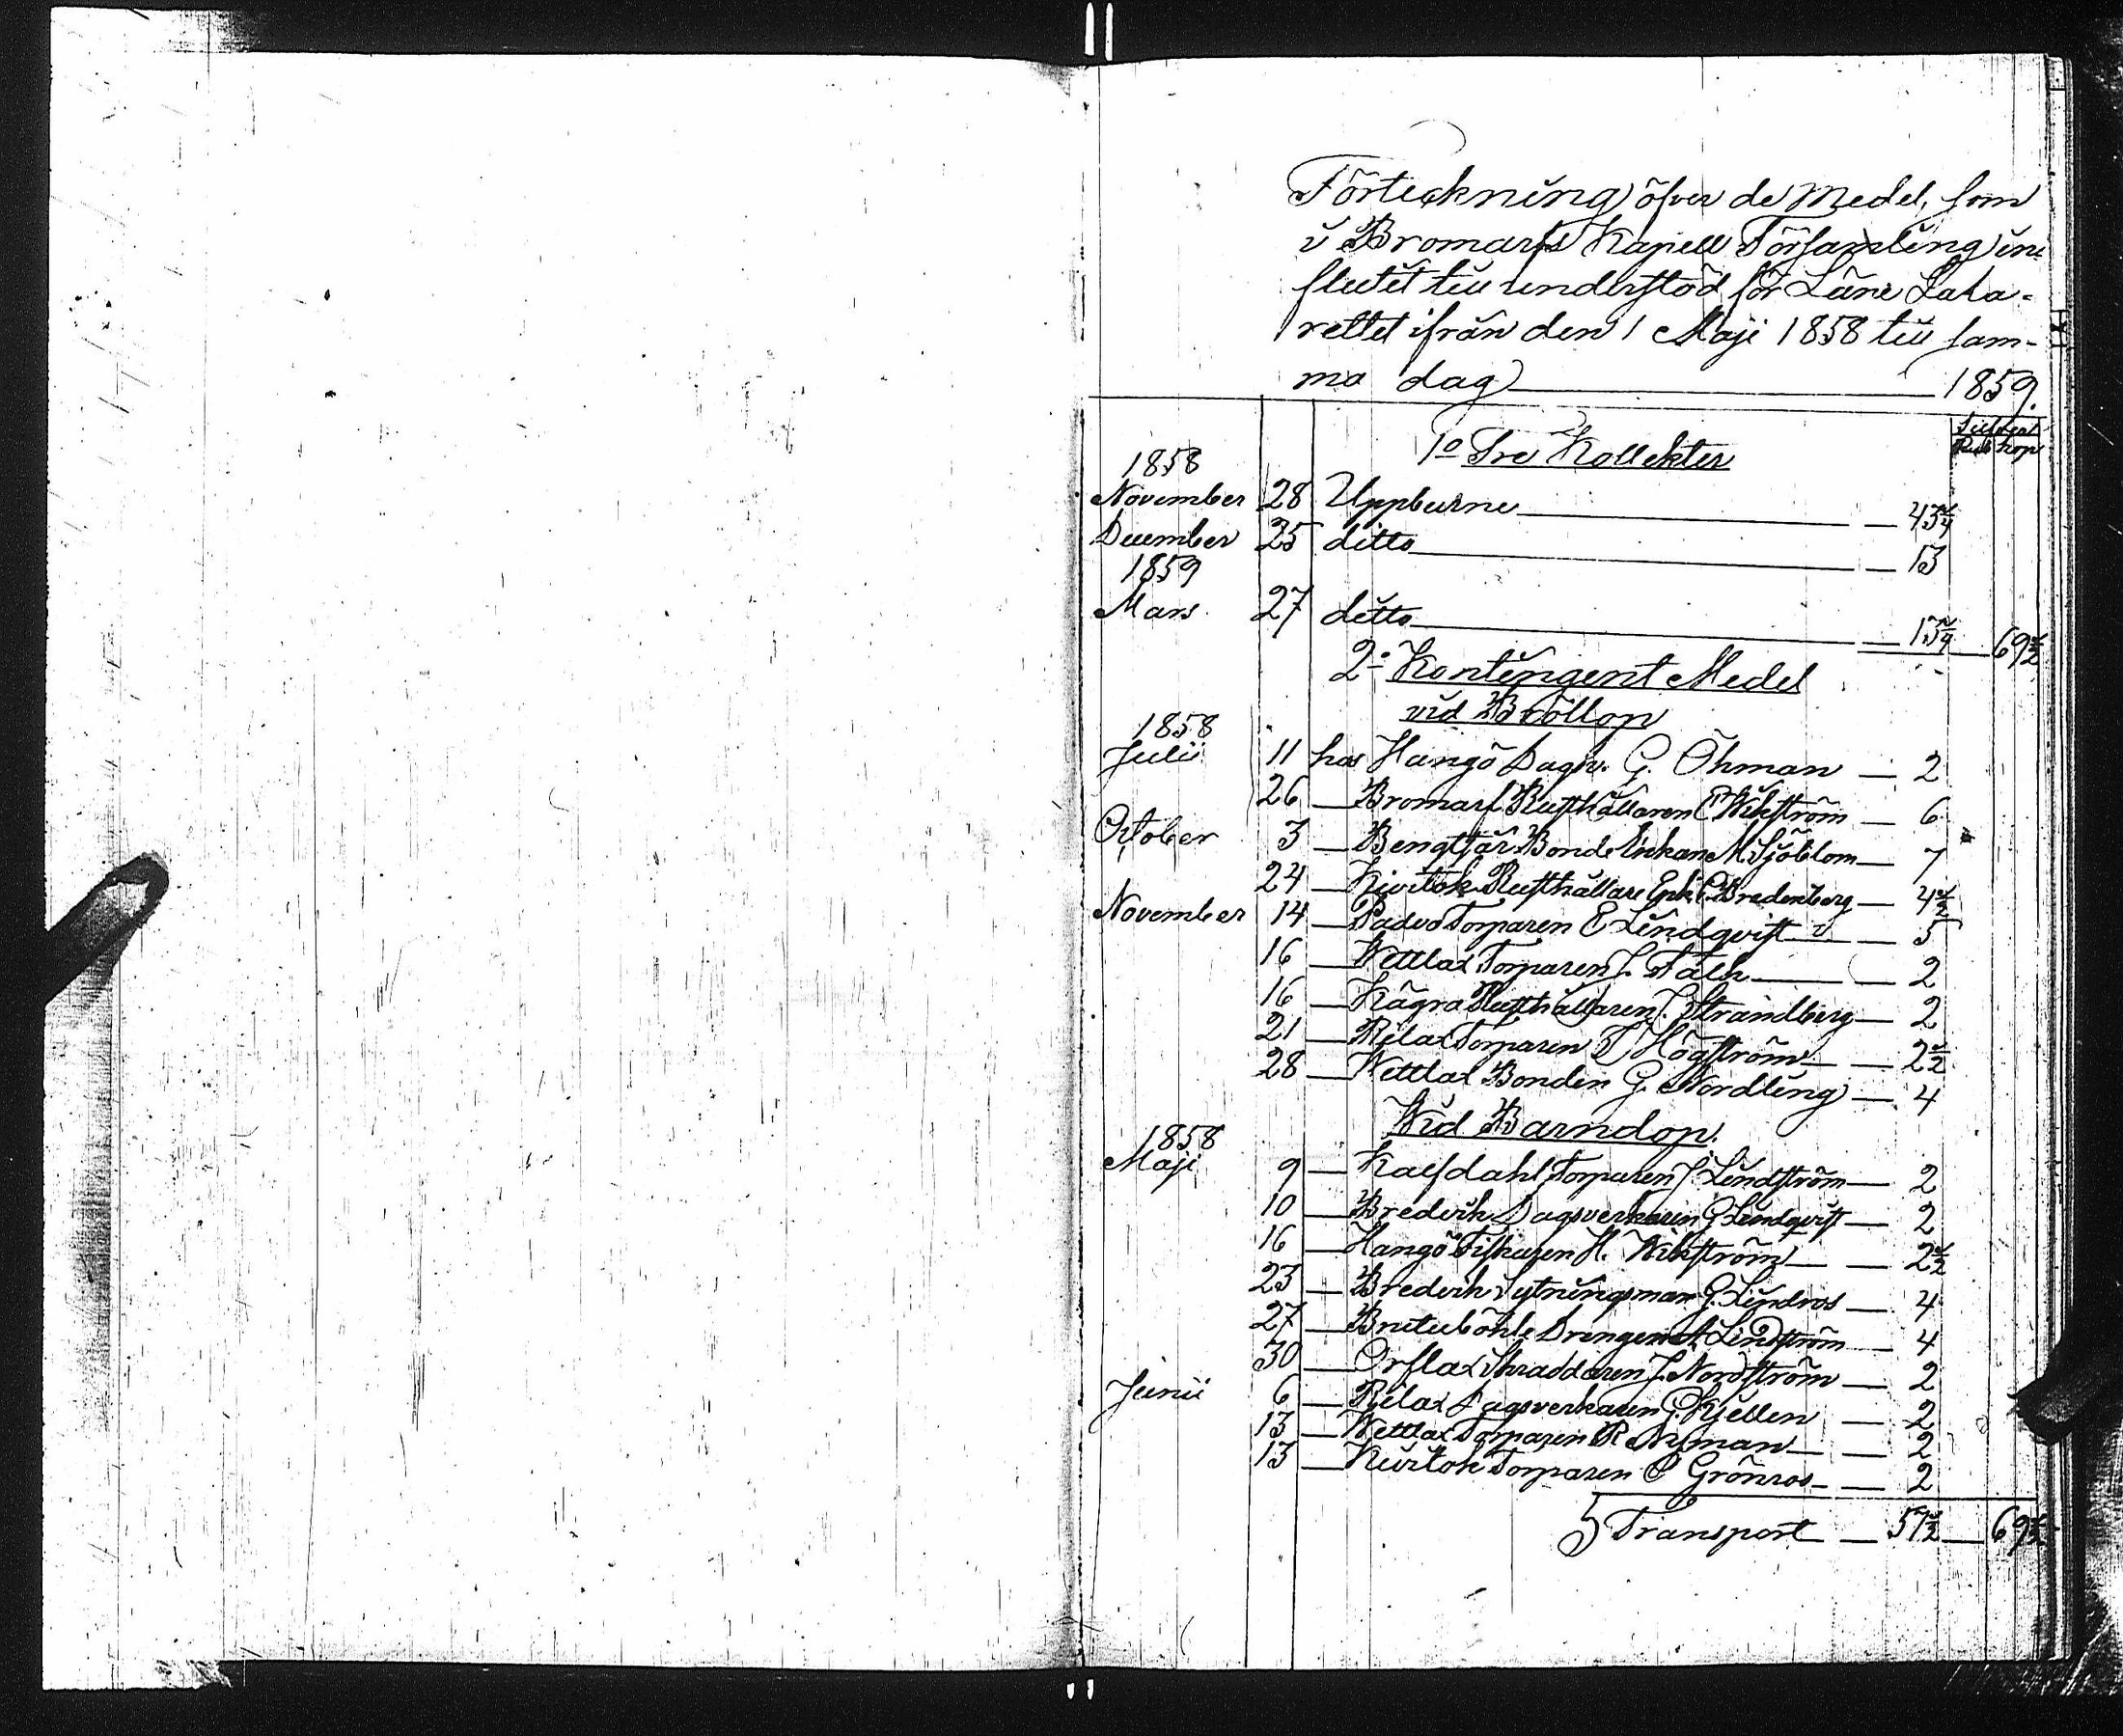 Förteckning öfver de Medel, som
i Bromarfs Kapell Församling in-
flutit till understöd för Läne Laza-
rettet ifrån den 1 Maji 1858 till sam-
ma dag 1859.
Silfver
Rub kop
1o Tre Kollekter
1858
November 28 Uppburne 43 3/4
December 25 ditto 13
1859
Mars 27 ditto
69 1/2
2o Kontingent Medel
vid Bröllop
1858
Julii 11 hos Hangö Dagsv. G. Öhman 2
26 Bromarf Rusthållaren Wikström 6
October 3 Bengtsår Bonde Enkan M Sjöblom 7
24 Kivitok Rusthållare Enk. Bredenberg 4 1/2
November 14 Padva Torparen E Lindqvist 5
16 Wettlax Torparen J. Falk 2
16 Kägra Rusthållaren J. Strandberg 2
21 Rilax Torparen Högström 2 1/2
28 Wettlax Bonden G. Nordling 4
Wid Barndop.
1858
Maji 9 Kalfdahl Torparen J. Lindström 2
10 Bredvik Dagsverkaren G Lindqvist 2
16 Hangö Fiskaren H. Wikström 2 1/2
23 Bredvik Sytningsman G. Lindros 4
27 Drengen A Lindström 4
30 Orslax Skraddaren J. Nordström 2
Junii 6 Rilax Dagsverkaren G. Kjellen 2
13 Wettlax Torparen R Nyman 2
13 Kivitok Torparen Grönros 2
Transport 57 1/2 69 1/2